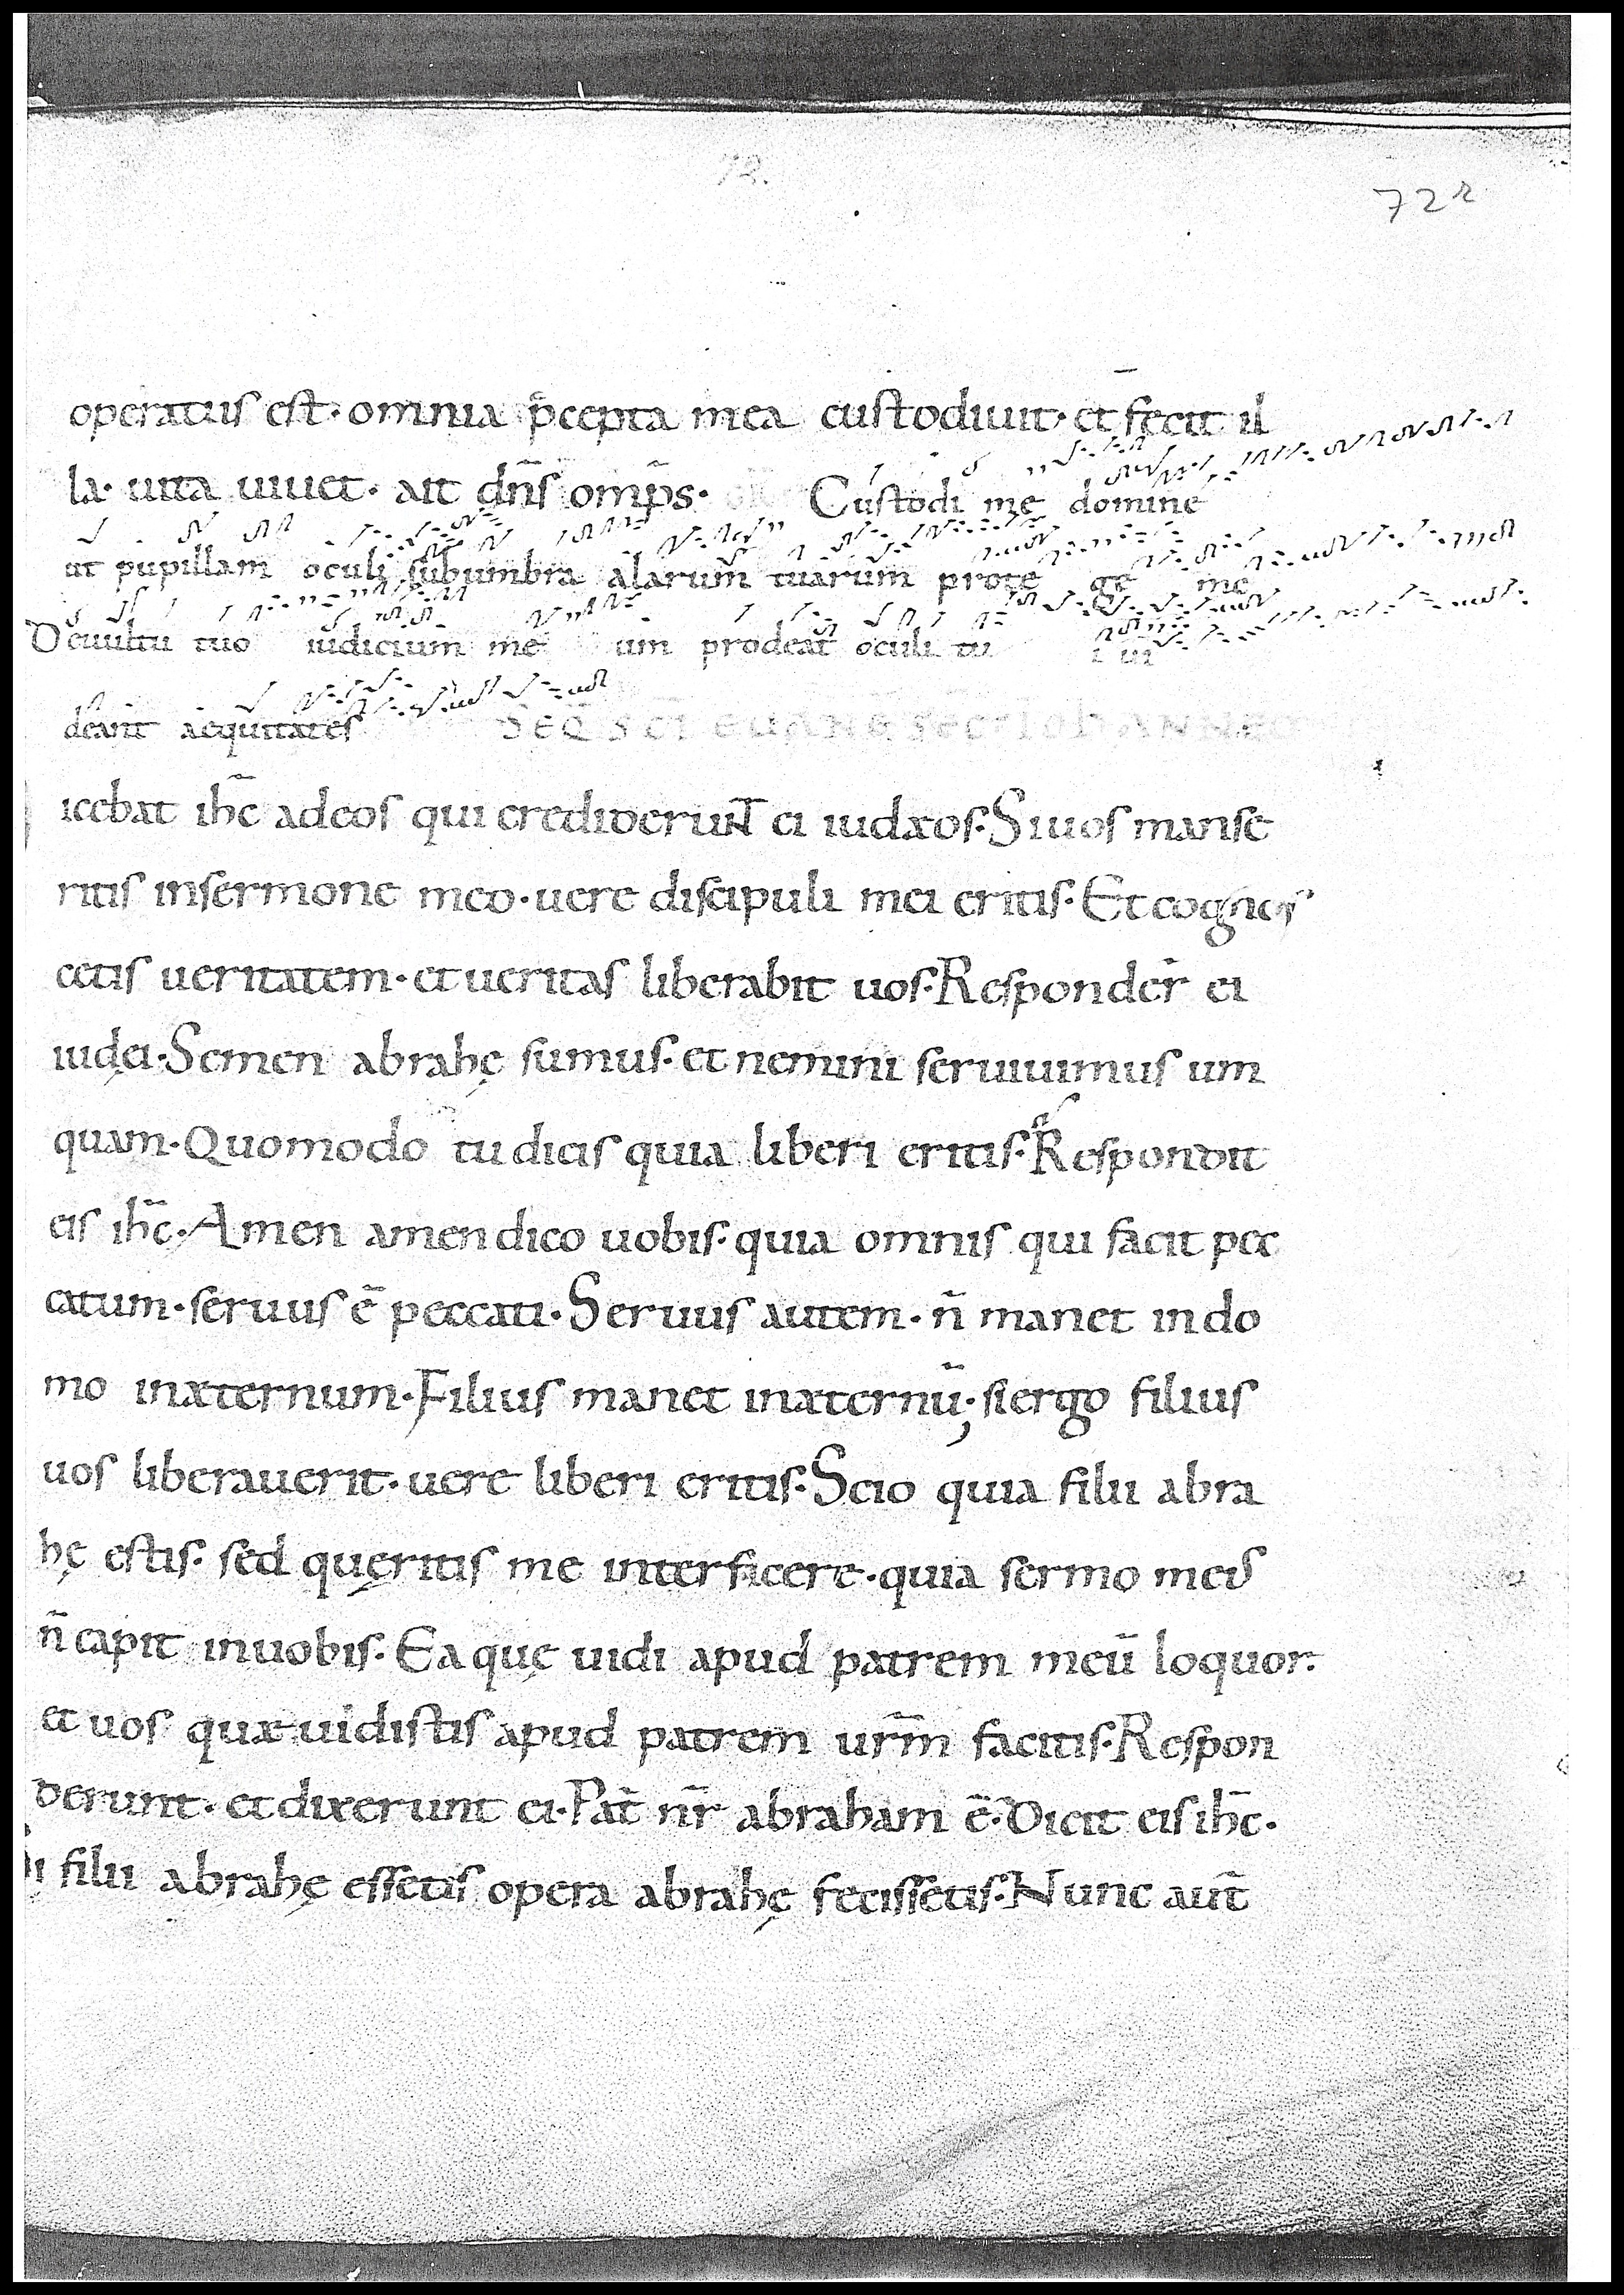 72.
72r
operatus est· omnia p̄cepta mea custodiuit· et fecit il
la· uita uiuet· ait dn̄s omp̄s· Custodi me domine
ut pupillam oculi sub umbra alarum tuarum prote ge me
De uultu tuo iudicium me um prodeat oculi tu i ui
deant aequitates SEQ̄ SC̄I EUANḠ SEC̄ IOHANNEM
icebat ih̄c ad eos qui crediderunt ei iudæos· Si uos manse
ritis in sermone meo· uere discipuli mei eritis· Et cognos
cetis ueritatem· et ueritas liberabit uos· Responder̄ ei
iudęi· Semen abrahę sumus· et nemini seruiuimus um
quam· Quomodo tu dicis quia liberi eritis· Respondit
eis ih̄c· Amen amen dico uobis· quia omnis qui facit pec
catum· seruus ē peccati· Seruus autem· n̄ manet in do
mo in æternum· Filius manet in æternū; si ergo filius
uos liberauerit· uere liberi eritis· Scio quia filii abra
hę estis· sed quęritis me interficere· quia sermo meus
n̄ capit in uobis· Ea quę uidi apud patrem meū loquor·
et uos quæ uidistis apud patrem ur̄m facitis· Respon
derunt· et dixerunt ei· Pat̄ nr̄ abraham ē· Dicit eis ih̄c·
Si filii abrahę essetis opera abrahę fecissetis· Nunc aut̄